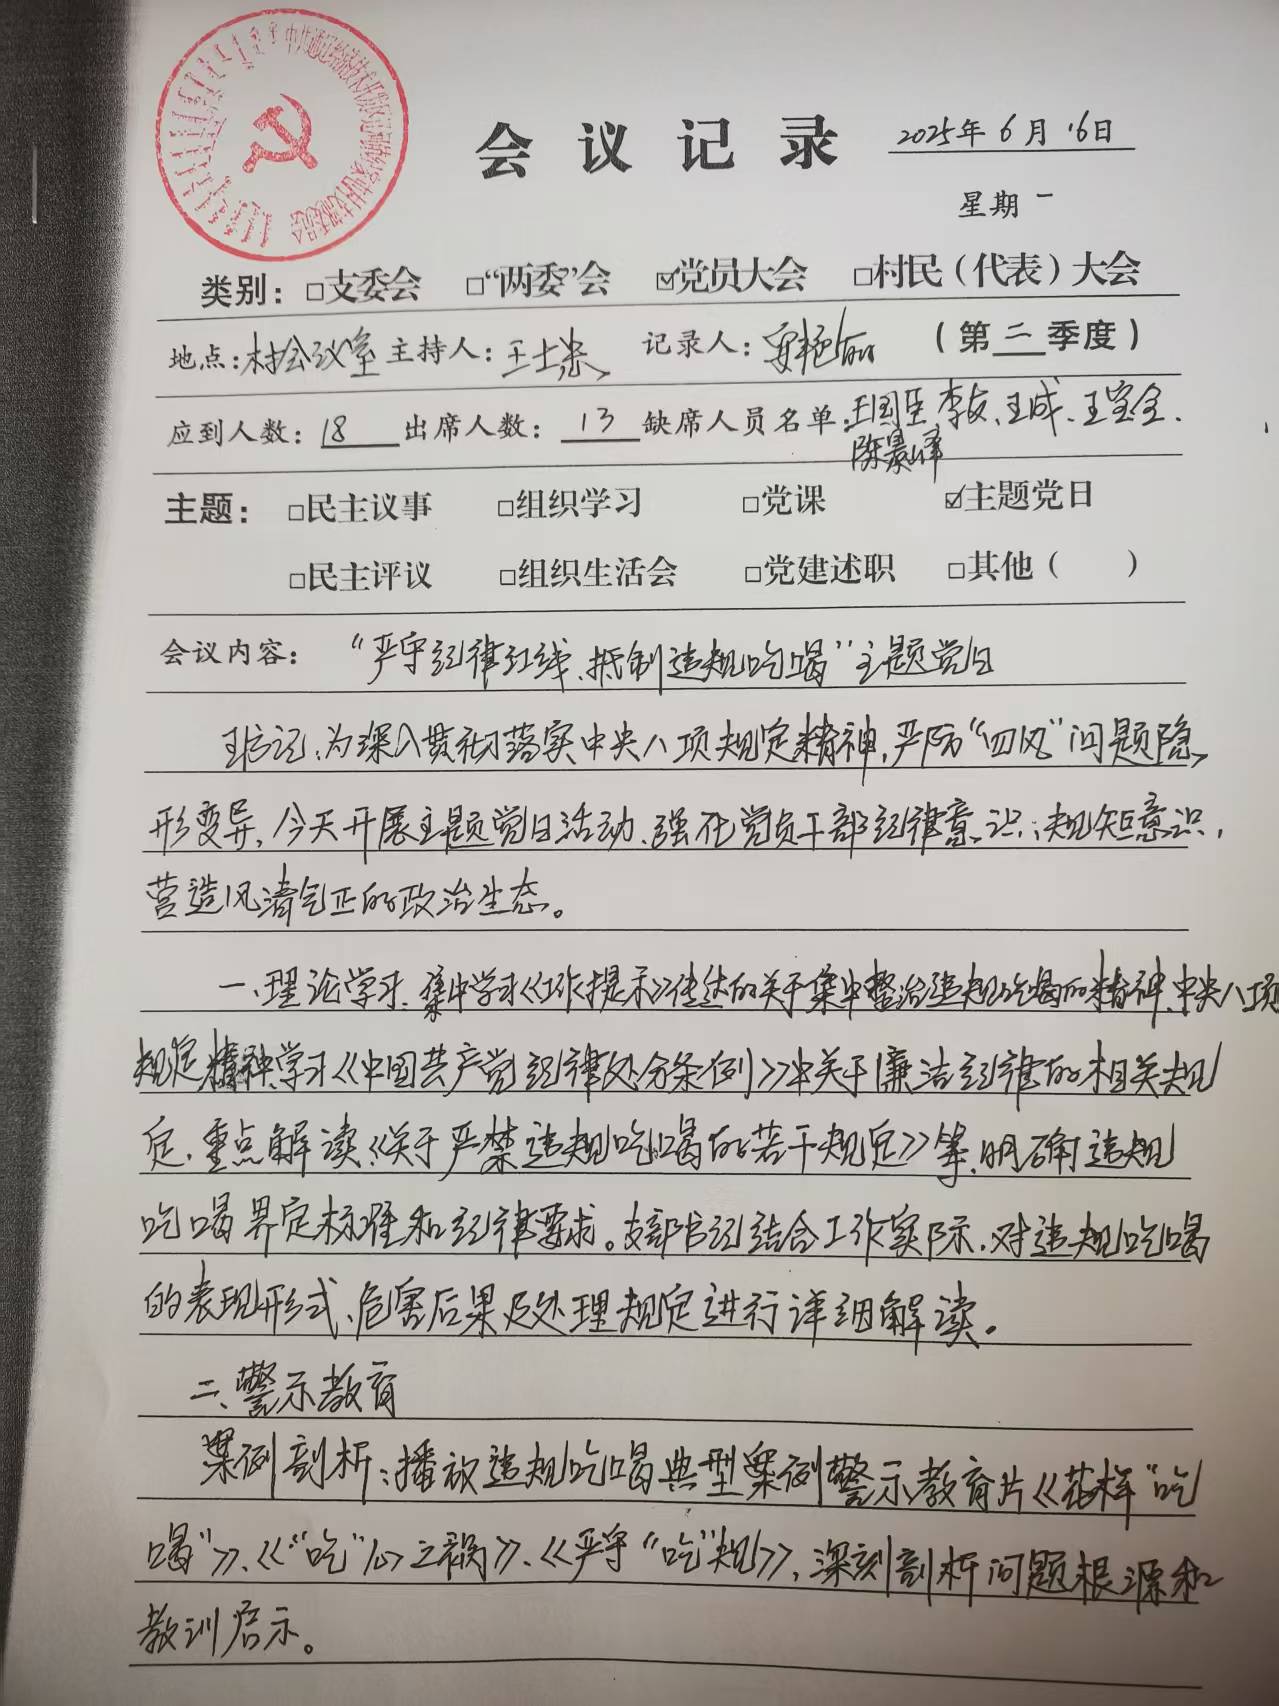 会议记录 2025年6月16日
星期一
类别：□支委会 □“两委”会 ☑党员大会 □村民（代表）大会
地点：村会议室 主持人：王士忠 记录人：安艳 （第二季度）
应到人数：18 出席人数：13 缺席人员名单：王国臣、李友、王成、王宝全、
陈景峰
主题：□民主议事 □组织学习 □党课 ☑主题党日
□民主评议 □组织生活会 □党建述职 □其他（ ）
会议内容：“严守纪律红线、抵制违规吃喝”主题党日
王书记：为深入贯彻落实中央八项规定精神，严防“四风”问题隐
形变异，今天开展主题党日活动、强化党员干部纪律意识、规矩意识，
营造风清气正的政治生态。
一、理论学习：集中学习《工作提示》传达的关于集中整治违规吃喝的精神、中央八项
规定精神、学习《中国共产党纪律处分条例》中关于廉洁纪律的相关规
定，重点解读《关于严禁违规吃喝的若干规定》等，明确违规
吃喝界定标准和纪律要求。支部书记结合工作实际，对违规吃喝
的表现形式、危害后果及处理规定进行详细解读。
二、警示教育
案例剖析：播放违规吃喝典型案例警示教育片《花样“吃
喝”》、《“吃”心之祸》、《严守“吃”规》，深刻剖析问题根源和
教训启示。